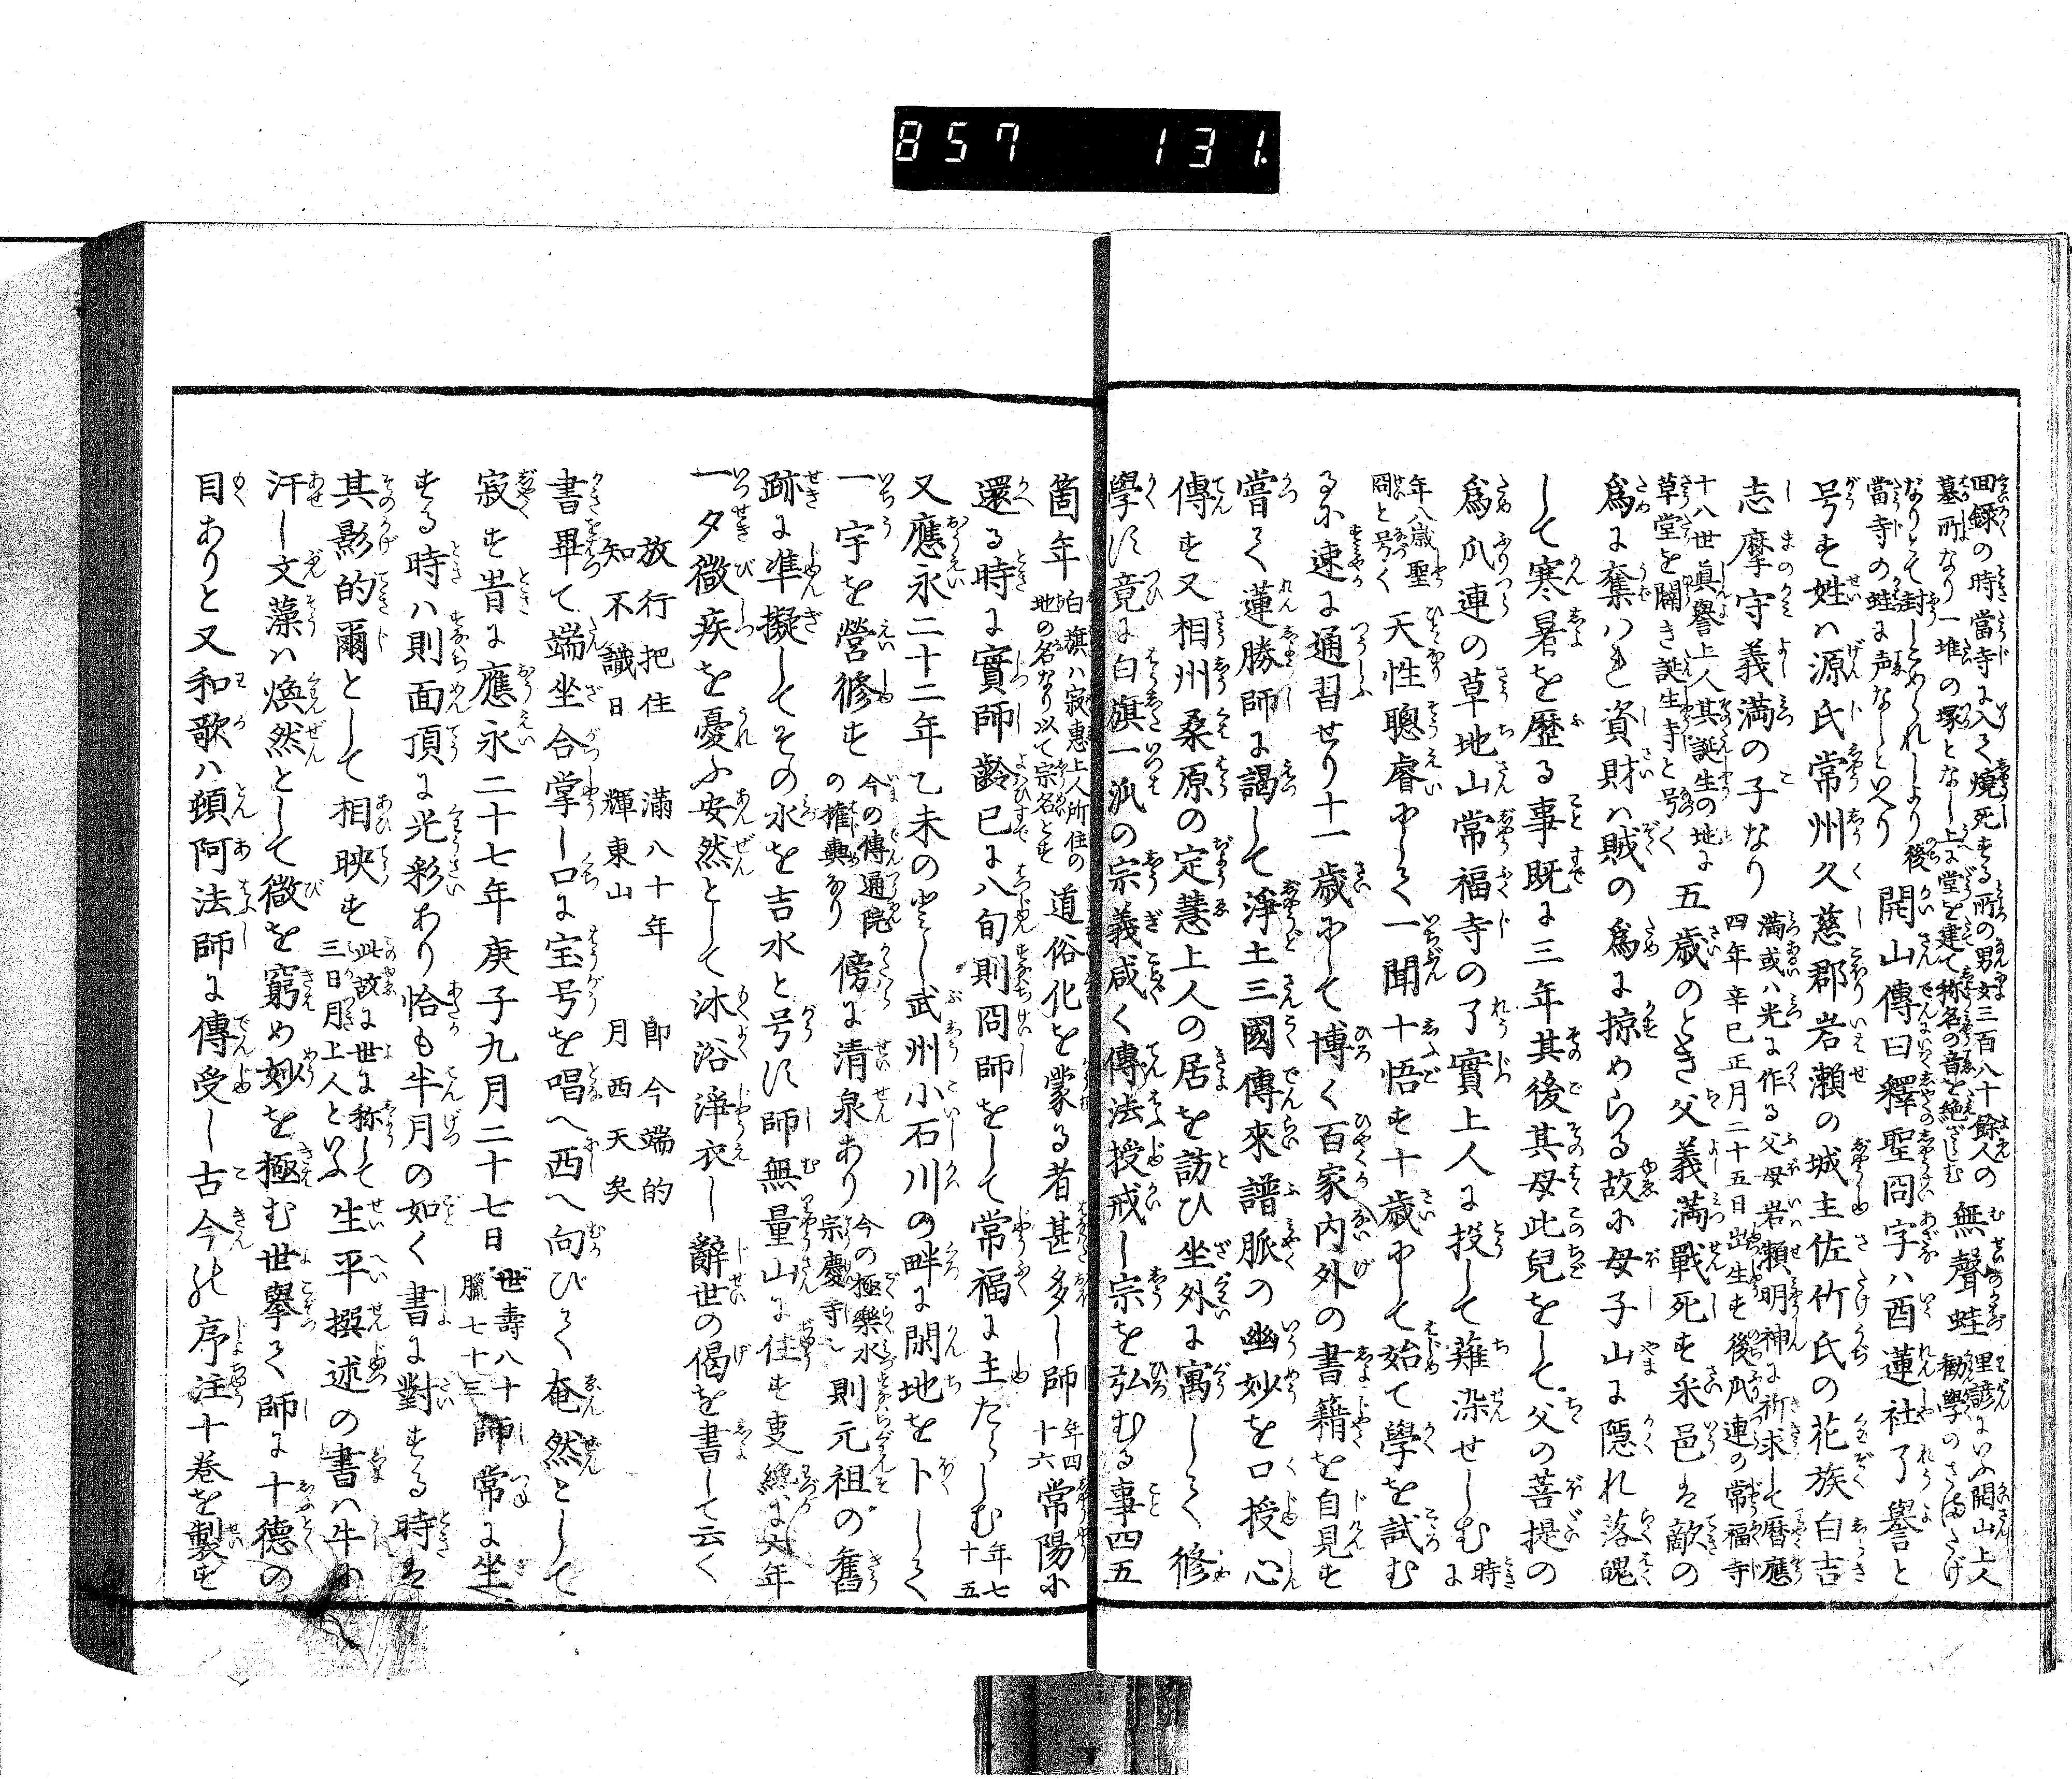 857 131.
回録の時當寺に入て燒死する所の男女三百八十餘人の
墓所なり一堆の塚となし上に堂を建て称名の音を絶ざらしむ
無聲蛙 里諺にいふ開山上人勧學のさまたげ
なりとて封しとめられしより後
當寺の蛙に声なしといへり
開山傳曰釋聖冏字ハ酉蓮社了譽と
号す姓ハ源氏常州久慈郡岩瀬の城主佐竹氏の花族白吉
志摩守義満の子なり 満或ハ光に作る父母岩瀬明神に祈求して暦應
四年辛巳正月二十五日出生す後瓜連の常福寺
十八世眞譽上人其誕生の地に
草堂を闢き誕生寺と号く
五歳のとき父義満戰死す采邑は敵の
爲に奪ハれ資財ハ賊の爲に掠めらる故に母子山に隠れ落魄
して寒暑を歴る事既に三年其後其母此兒をして父の菩提の
爲瓜連の草地山常福寺の了實上人に投して薙染せしむ 時に
年八歳聖
冏と号く
天性聰睿にして一聞十悟す十歳にして始て學を試む
るに速に通習せり十一歳にして博く百家内外の書籍を自見す
嘗て蓮勝師に謁して淨土三國傳來譜脈の幽妙を口授心
傳す又相州桑原の定慧上人の居を訪ひ坐外に寓して修
學し竟に白旗一派の宗義咸く傳法授戒し宗を弘むる事四五
箇年 白旗ハ寂惠上人所住の
地の名なり以て宗名とす
道俗化を蒙る者甚多し師 年四
十六
常陽に
還る時に實師齢已に八旬則冏師をして常福に主たらしむ 年七
十五
又應永二十二年乙未のとし武州小石川の畔に閑地を卜して
一宇を營修す 今の傳通院
の権輿なり
傍に清泉あり 今の極樂水
宗慶寺是
則元祖の舊
跡に準擬してその水を吉水と号し師無量山に住す纔に六年
一夕微疾を憂ふ安然として沐浴淨衣し辭世の偈を書して云く
放行把住 滿八十年 即今端的
知不識日 輝東山 月西天矣
書畢て端坐合掌し口に宝号を唱へ西へ向ひて奄然として
寂す時に應永二十七年庚子九月二十七日 世壽八十
臘七十三
師常に坐
する時ハ則面頂に光彩あり恰も半月の如く書に對する時は
其影的爾として相映す 此故に世に称して
三日月上人といふ
生平撰述の書ハ牛に
汗し文藻ハ煥然として微を窮め妙を極む世擧て師に十德の
目ありと又和歌ハ頓阿法師に傳受し古今の序注十巻を製す